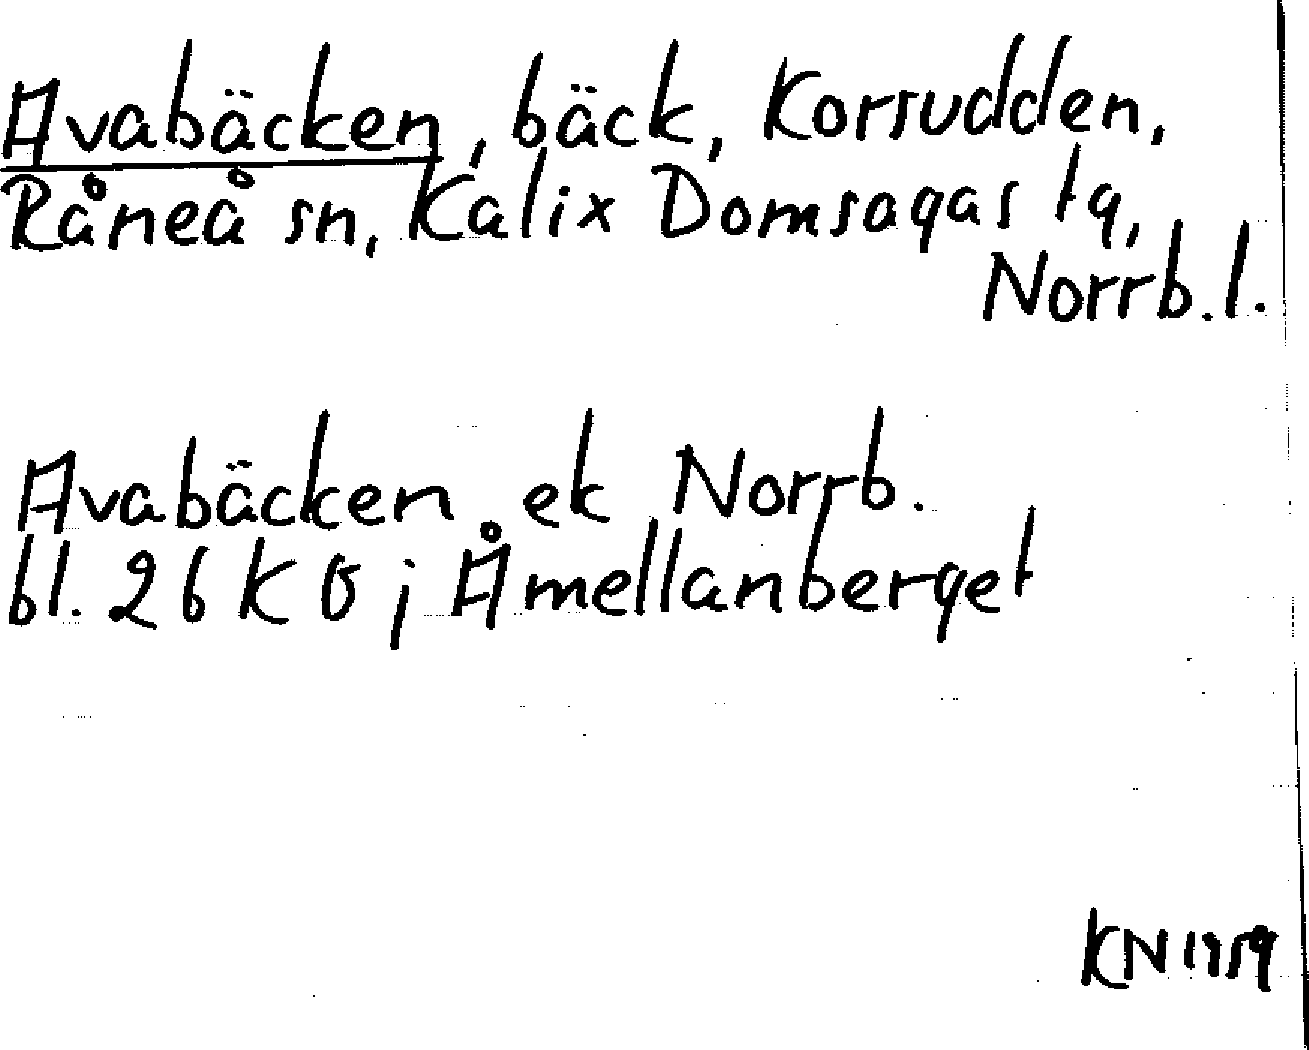 Avabäcken, bäck, Korsudden,
Råneå sn, Kalix Domsagas tg,
Norrb.l.
Avabäcken ek Norrb.
bl. 26 K Ö; Åmellanberget
KN 1959